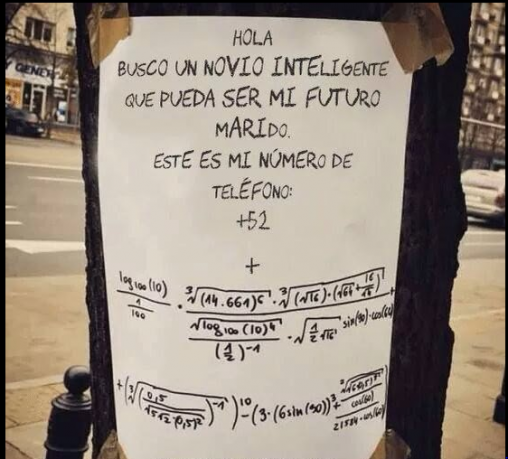 HOLA
BUSCO UN NOVIO INTELIGENTE
QUE PUEDA SER MI FUTURO
MARIDO.
ESTE ES MI NÚMERO DE
TELÉFONO:
+52
+
log100(10) / (1/100) · ∛(14.661)⁶ · ∛((√16)·(√64+16/√
√log100(10)⁴ / (1/2)⁻¹ · √(1/2 √16) sin(90)·cos(60)
+(∛(0,5 /
)⁻¹)¹⁰-(3·(6sin(90))³+
cos(60)
21584·cos(60)